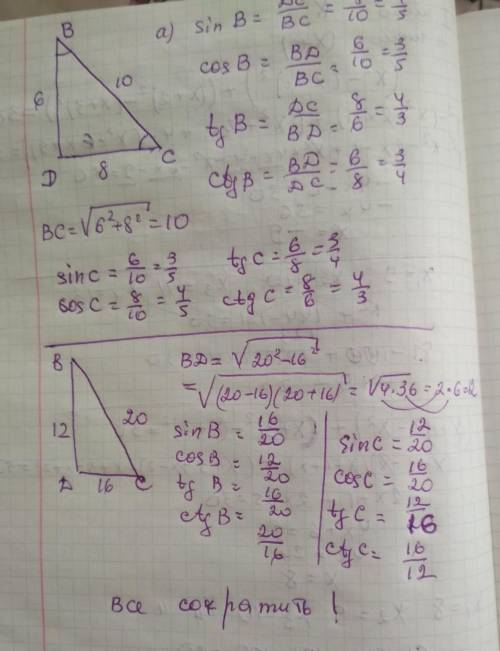 а) sin B = DC/BC = 8/10 = 4/5
cos B = BD/BC = 6/10 = 3/5
tg B = DC/BD = 8/6 = 4/3
ctg B = BD/DC = 6/8 = 3/4
B
6
10
D
8
C
BC = √6²+8² = 10
sin C = 6/10 = 3/5
cos C = 8/10 = 4/5
tg C = 6/8 = 3/4
ctg C = 8/6 = 4/3
B
12
20
D
16
C
BD = √20²-16²
= √(20-16)(20+16) = √4·36 = 2·6=12
sin B = 16/20
cos B = 12/20
tg B = 16/20
ctg B = 20/16
sin C = 12/20
cos C = 16/20
tg C = 12/16
ctg C = 16/12
все сократить!